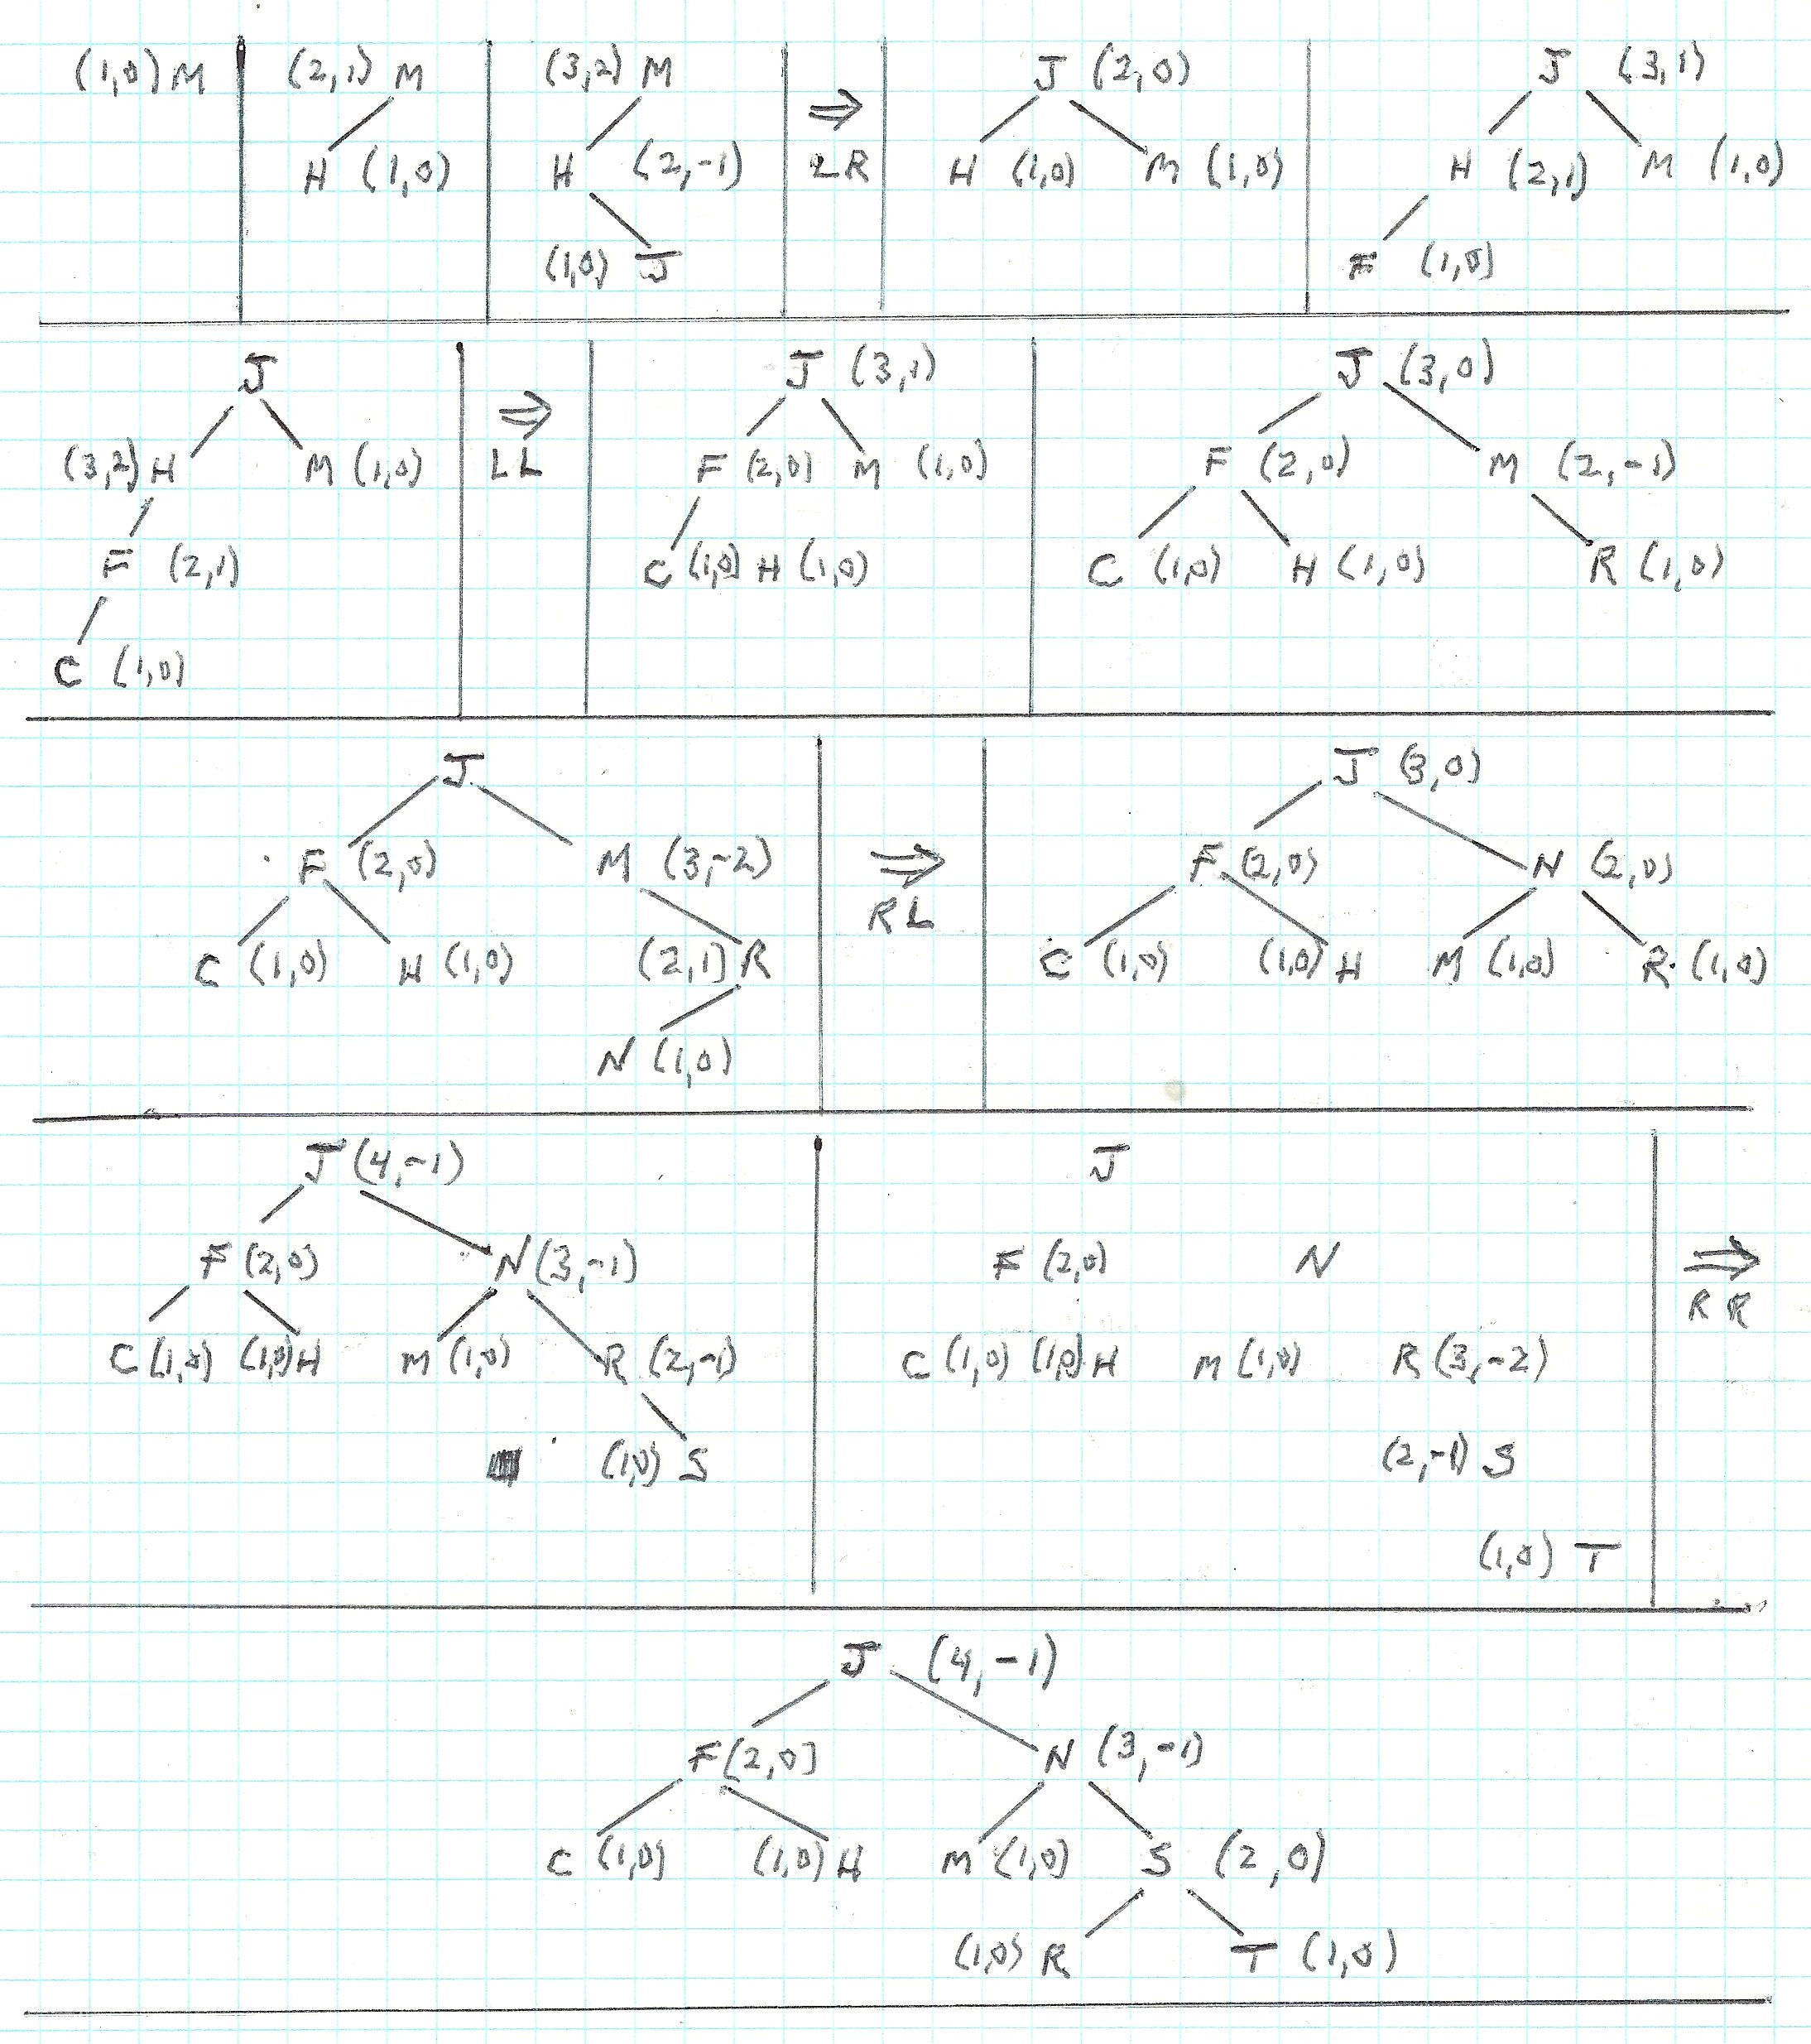 (1,0) M
(2,1) M
H (1,0)
(3,2) M
H (2,-1)
(1,0) J
⇒
LR
J (2,0)
H (1,0) M (1,0)
J (3,1)
H (2,1) M (1,0)
F (1,0)
J
(3,2) H M (1,0)
F (2,1)
C (1,0)
⇒
LL
J (3,1)
F (2,0) M (1,0)
C (1,0) H (1,0)
J (3,0)
F (2,0) M (2,-1)
C (1,0) H (1,0) R (1,0)
J
F (2,0) M (3,-2)
C (1,0) H (1,0) (2,1) R
N (1,0)
⇒
RL
J (3,0)
F (2,0) N (2,0)
C (1,0) (1,0) H M (1,0) R (1,0)
J (4,-1)
F (2,0) N (3,-1)
C (1,0) (1,0) H M (1,0) R (2,-1)
(1,0) S
J
F (2,0) N
C (1,0) (1,0) H M (1,0) R (3,-2)
(2,-1) S
(1,0) T
⇒
RR
J (4,-1)
F (2,0) N (3,-1)
C (1,0) (1,0) H M (1,0) S (2,0)
(1,0) R T (1,0)